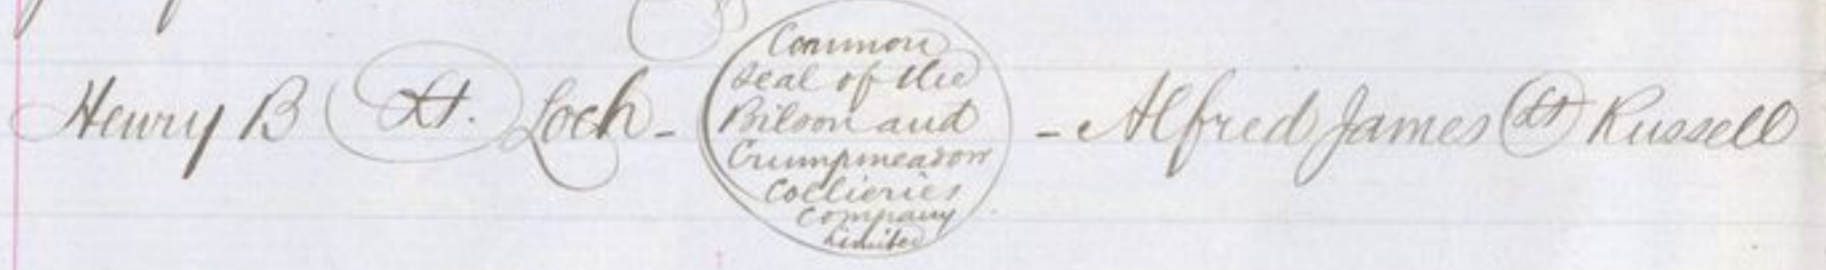 Henry B LS. Loch - Common
Seal of the
Bilson and
Crumpmeadow
Collieries
Company
Limited - Alfred James LS Russell